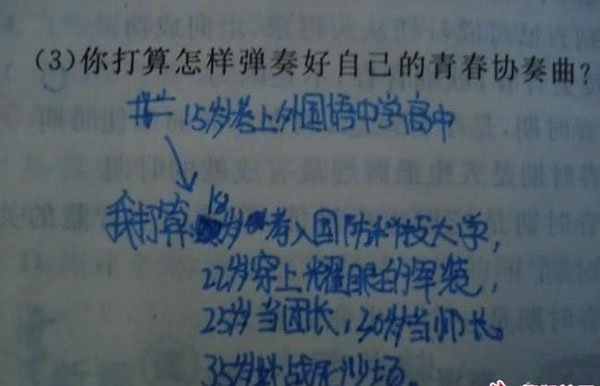 (3)你打算怎样弹奏好自己的青春协奏曲?
15岁考上外国语中学高中
我打算18岁考入国防科技大学,
22岁穿上耀眼的军装,
25岁当团长,30岁当师长
35岁时战死沙场。